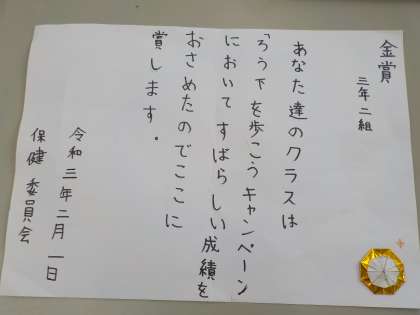 金賞
三年二組
あなた達のクラスは
「ろう下を歩こうキャンペーン
においてすばらしい成績を
おさめたのでここに
賞します。
令和三年二月一日
保健委員会